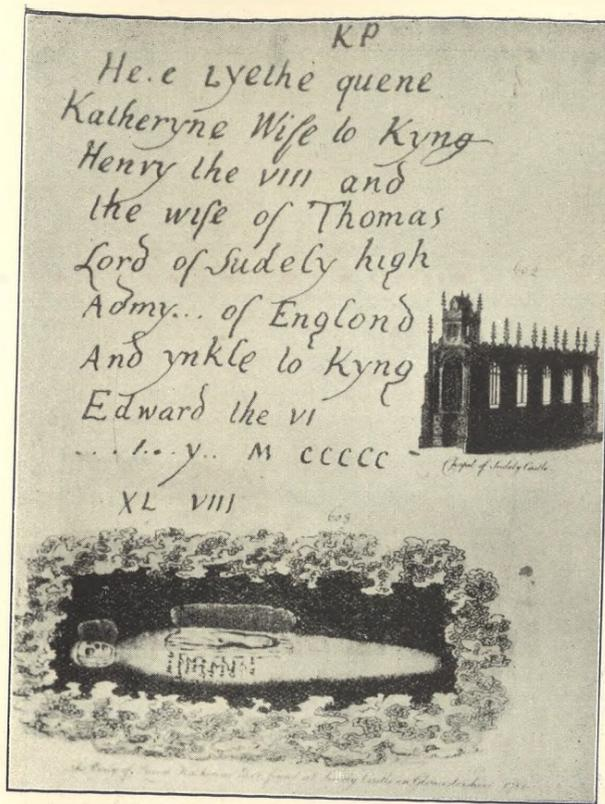 KP
He.e Lyethe quene
Katheryne Wife to Kyng
Henry the VIII and
the wife of Thomas
Lord of Sudely high
Admy... of Englond
And ynkle to Kyng
Edward the VI
.... 1... y.. M CCCCC
XL VIII
602
Chapel of Sudely Castle.
603
found at Sudely Castle in Glocestershire